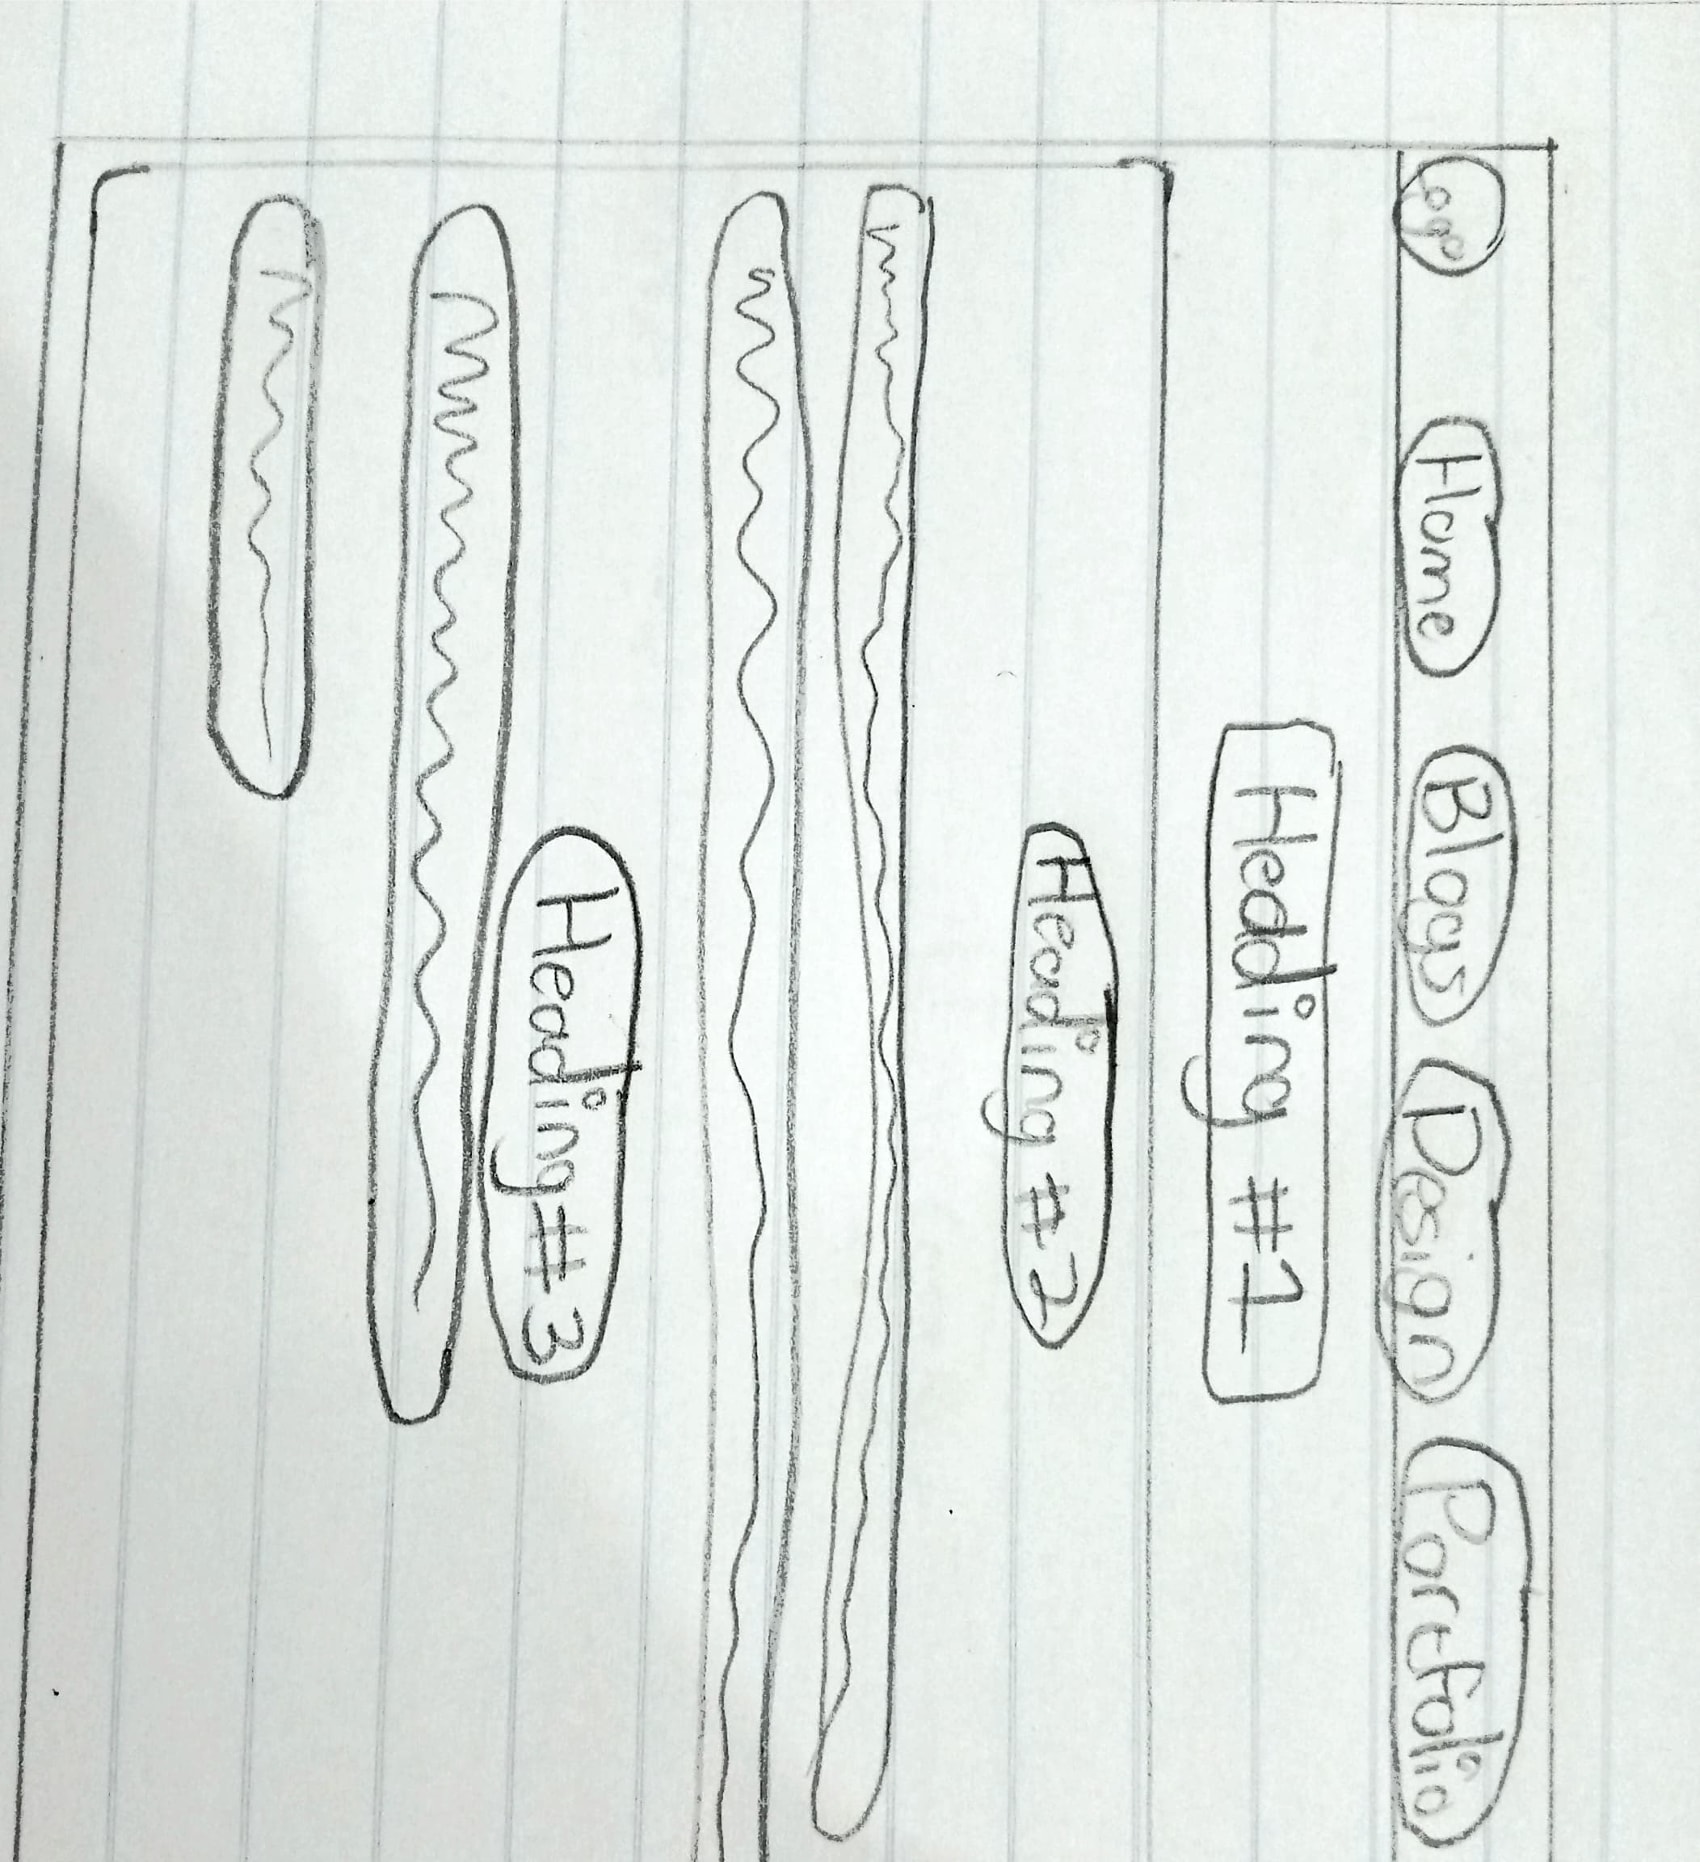 Logo Home Blogs Design Portfolio
Heading #1
Heading #2
Heading #3